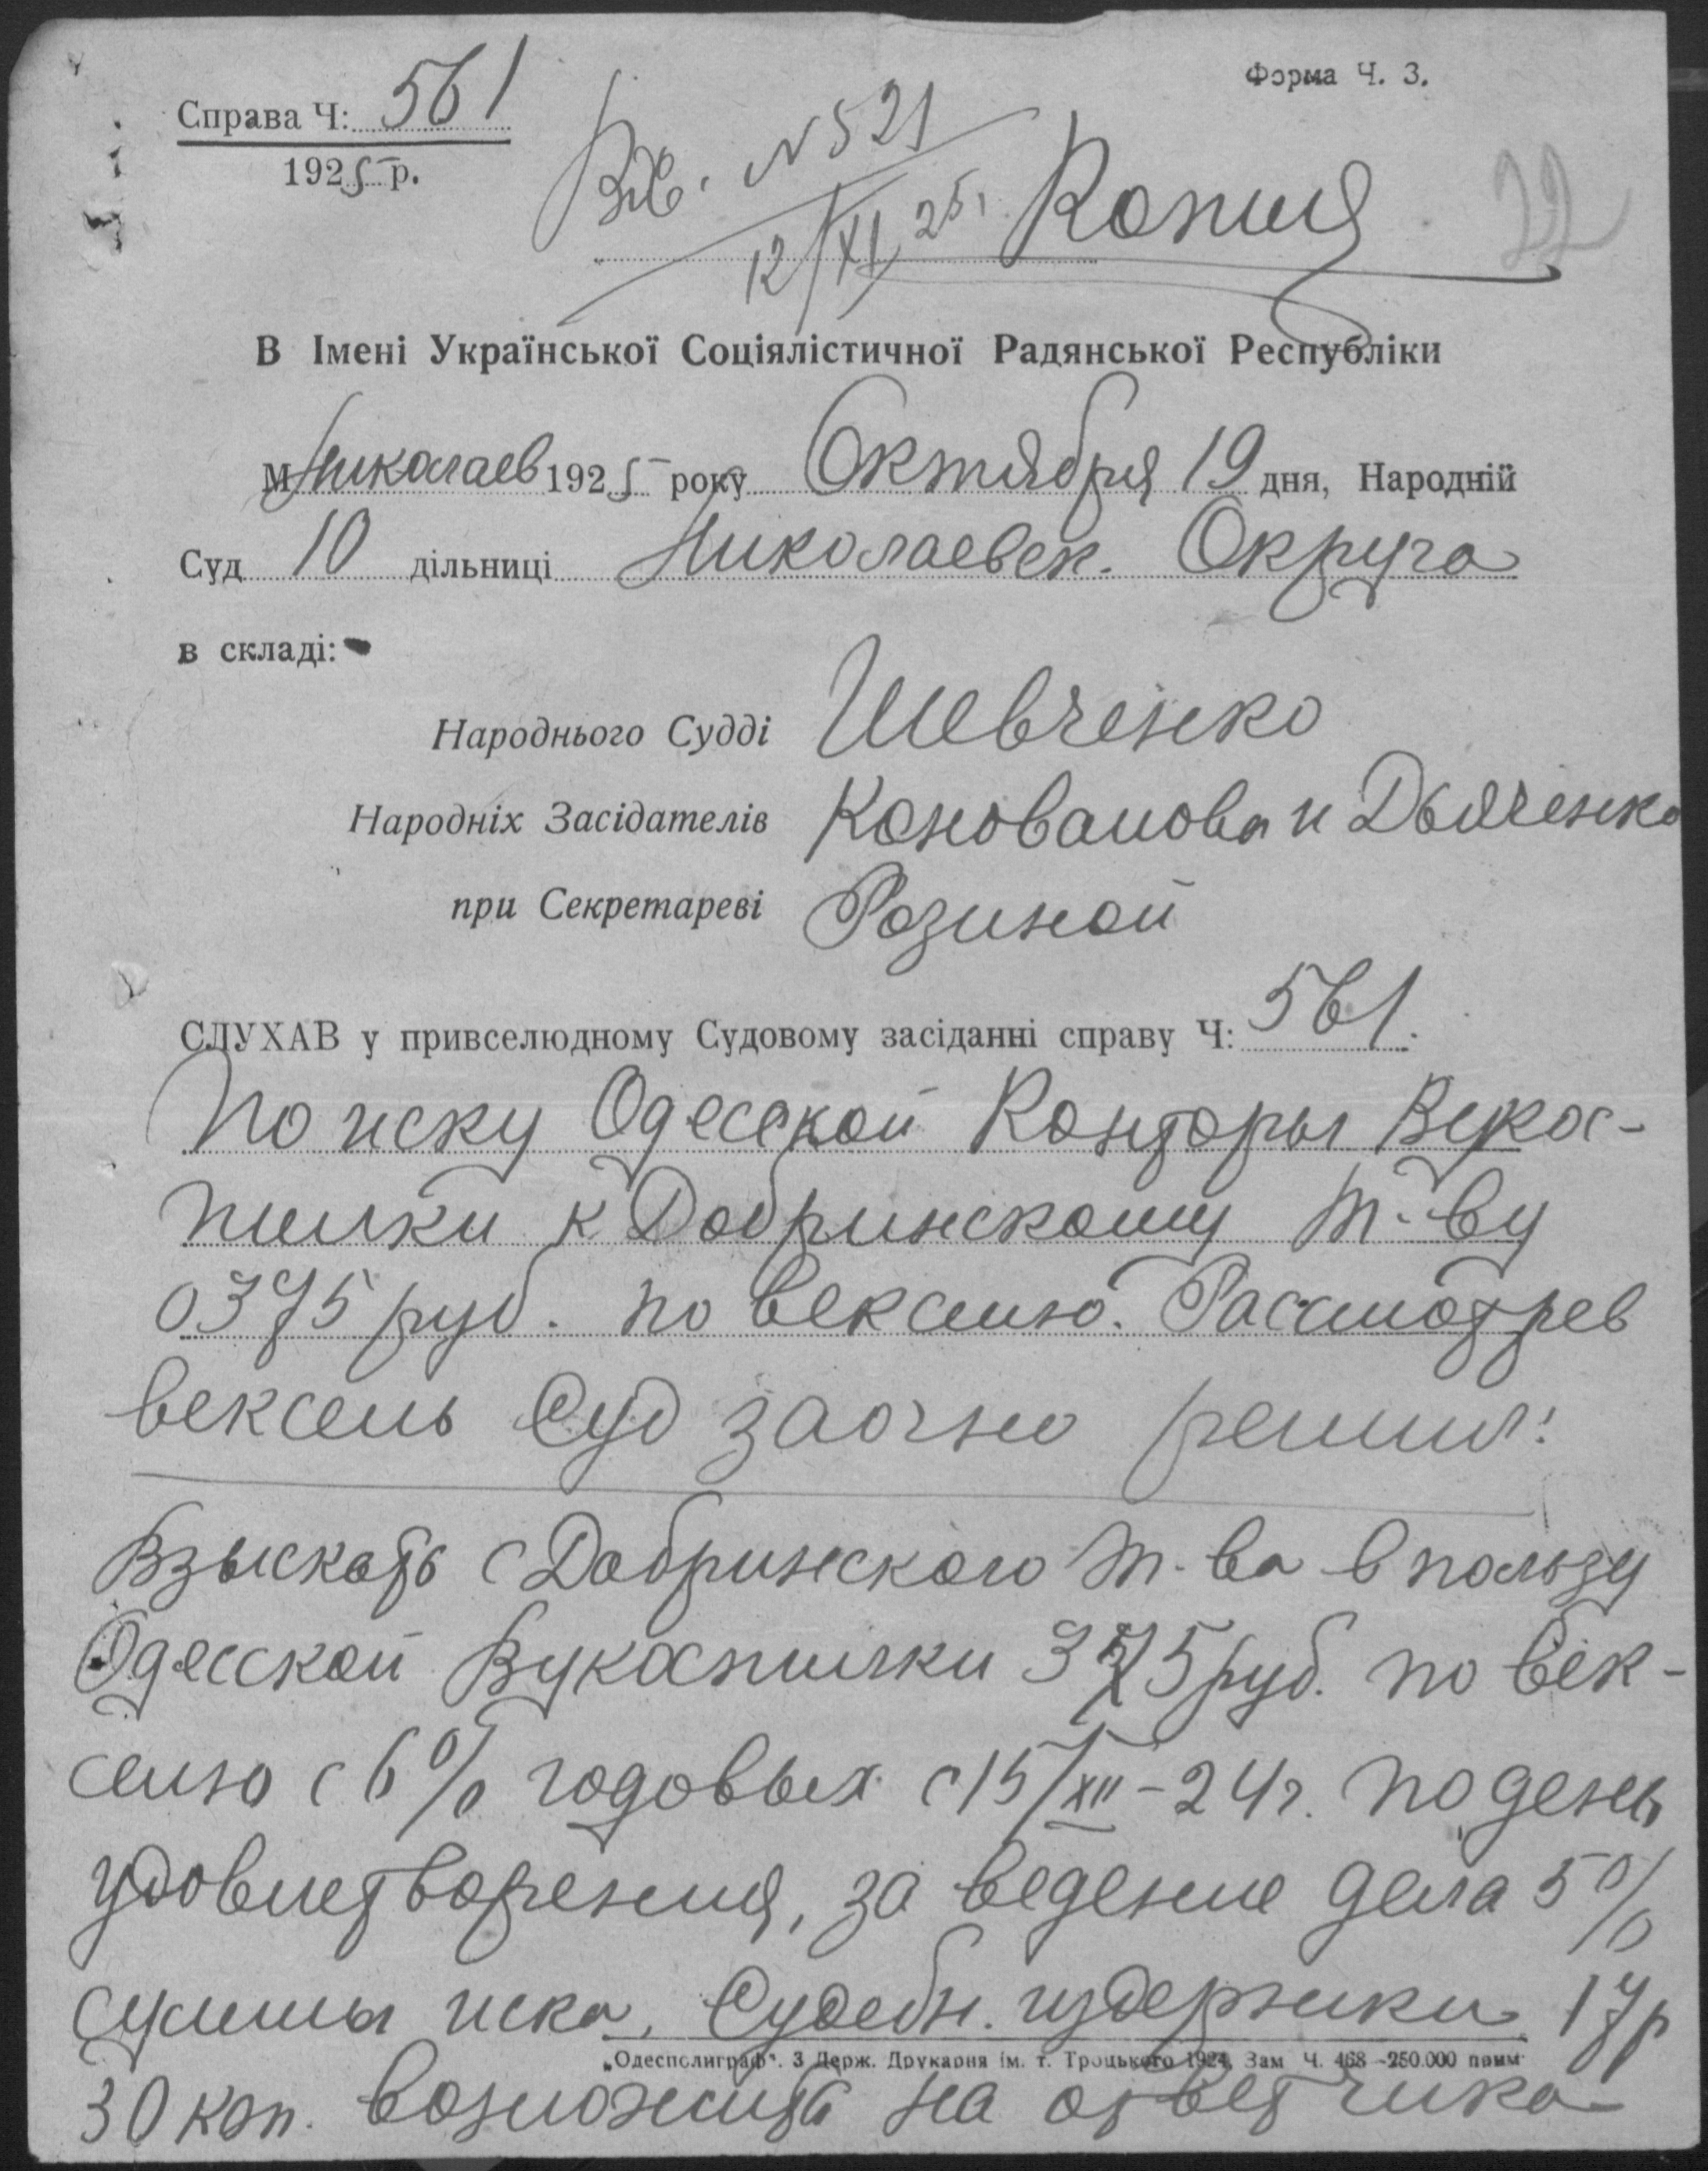 Форма Ч. 3.
Справа Ч: 561
1925 р.
Вх. N 521
12/XI 25.
Копия
22
В Імені Української Соціялістичної Радянської Республіки
м Николаев 1925 року Октября 19 дня, Народній
Суд 10 дільниці Николаевск. Округа
в складі:
Народнього Судді Шевченко
Народніх Засідателів Коновалова и Дьяченко
при Секретареві Розиной
СЛУХАВ у привселюдному Судовому засіданні справу Ч: 561.
По иску Одесской Конторы Вукос-
пилки к Добринскому т-ву
о 375 руб. по векселю. Рассмотрев
вексель Суд заочно решил:
Взыскать с Добринского т-ва в пользу
Одесской Вукоспилки 375 руб. по век-
селю с 6% годовых с 15/XII-24г. по день
удовлетворения, за ведение дела 5%
суммы иска, Судебн. издержки 17 р
„Одесполиграф“. 3 Держ. Друкарня ім. т. Троцького 1924. Зам Ч. 468 -250.000 прим
30 коп. возложить на ответчика